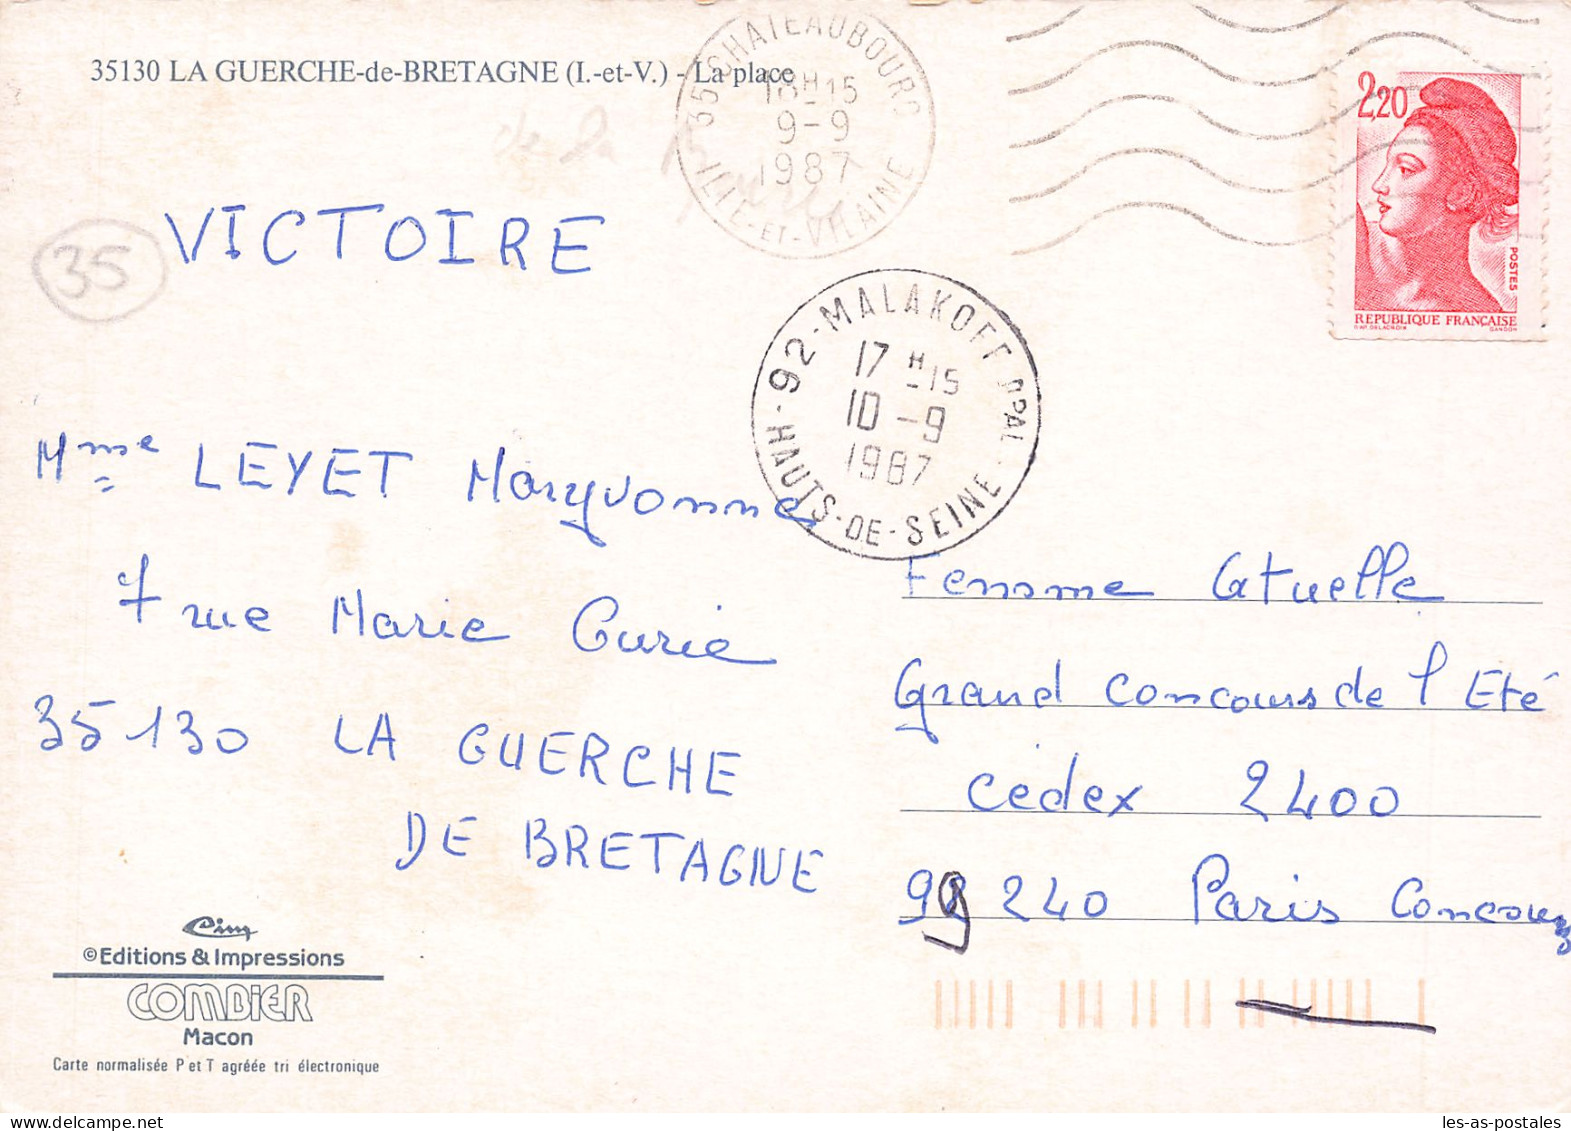 35130 LA GUERCHE-de-BRETAGNE (I.-et-V.) - La place
35 CHATEAUBOURG
18H15
9-9
1987
ILLE-ET-VILAINE
2,20
POSTES
REPUBLIQUE FRANÇAISE
D'AP. DELACROIX GANDON
de la
35
VICTOIRE
92-MALAKOFF PPAL
17H-15
10-9
1987
HAUTS-DE-SEINE
Mme LEYET Maryvonne
7 rue Marie Curie
35130 LA GUERCHE
DE BRETAGNE
Femme Actuelle
Grand Concours de l'Eté
Cédex 2400
99 240 Paris Concours
Cim
©Editions & Impressions
COMBIER
Macon
Carte normalisée P et T agréée tri électronique
les-as-postales